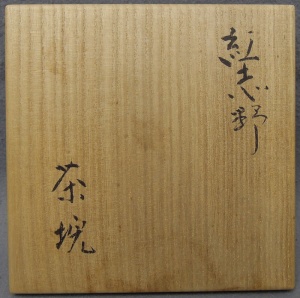 紅志野
茶垸